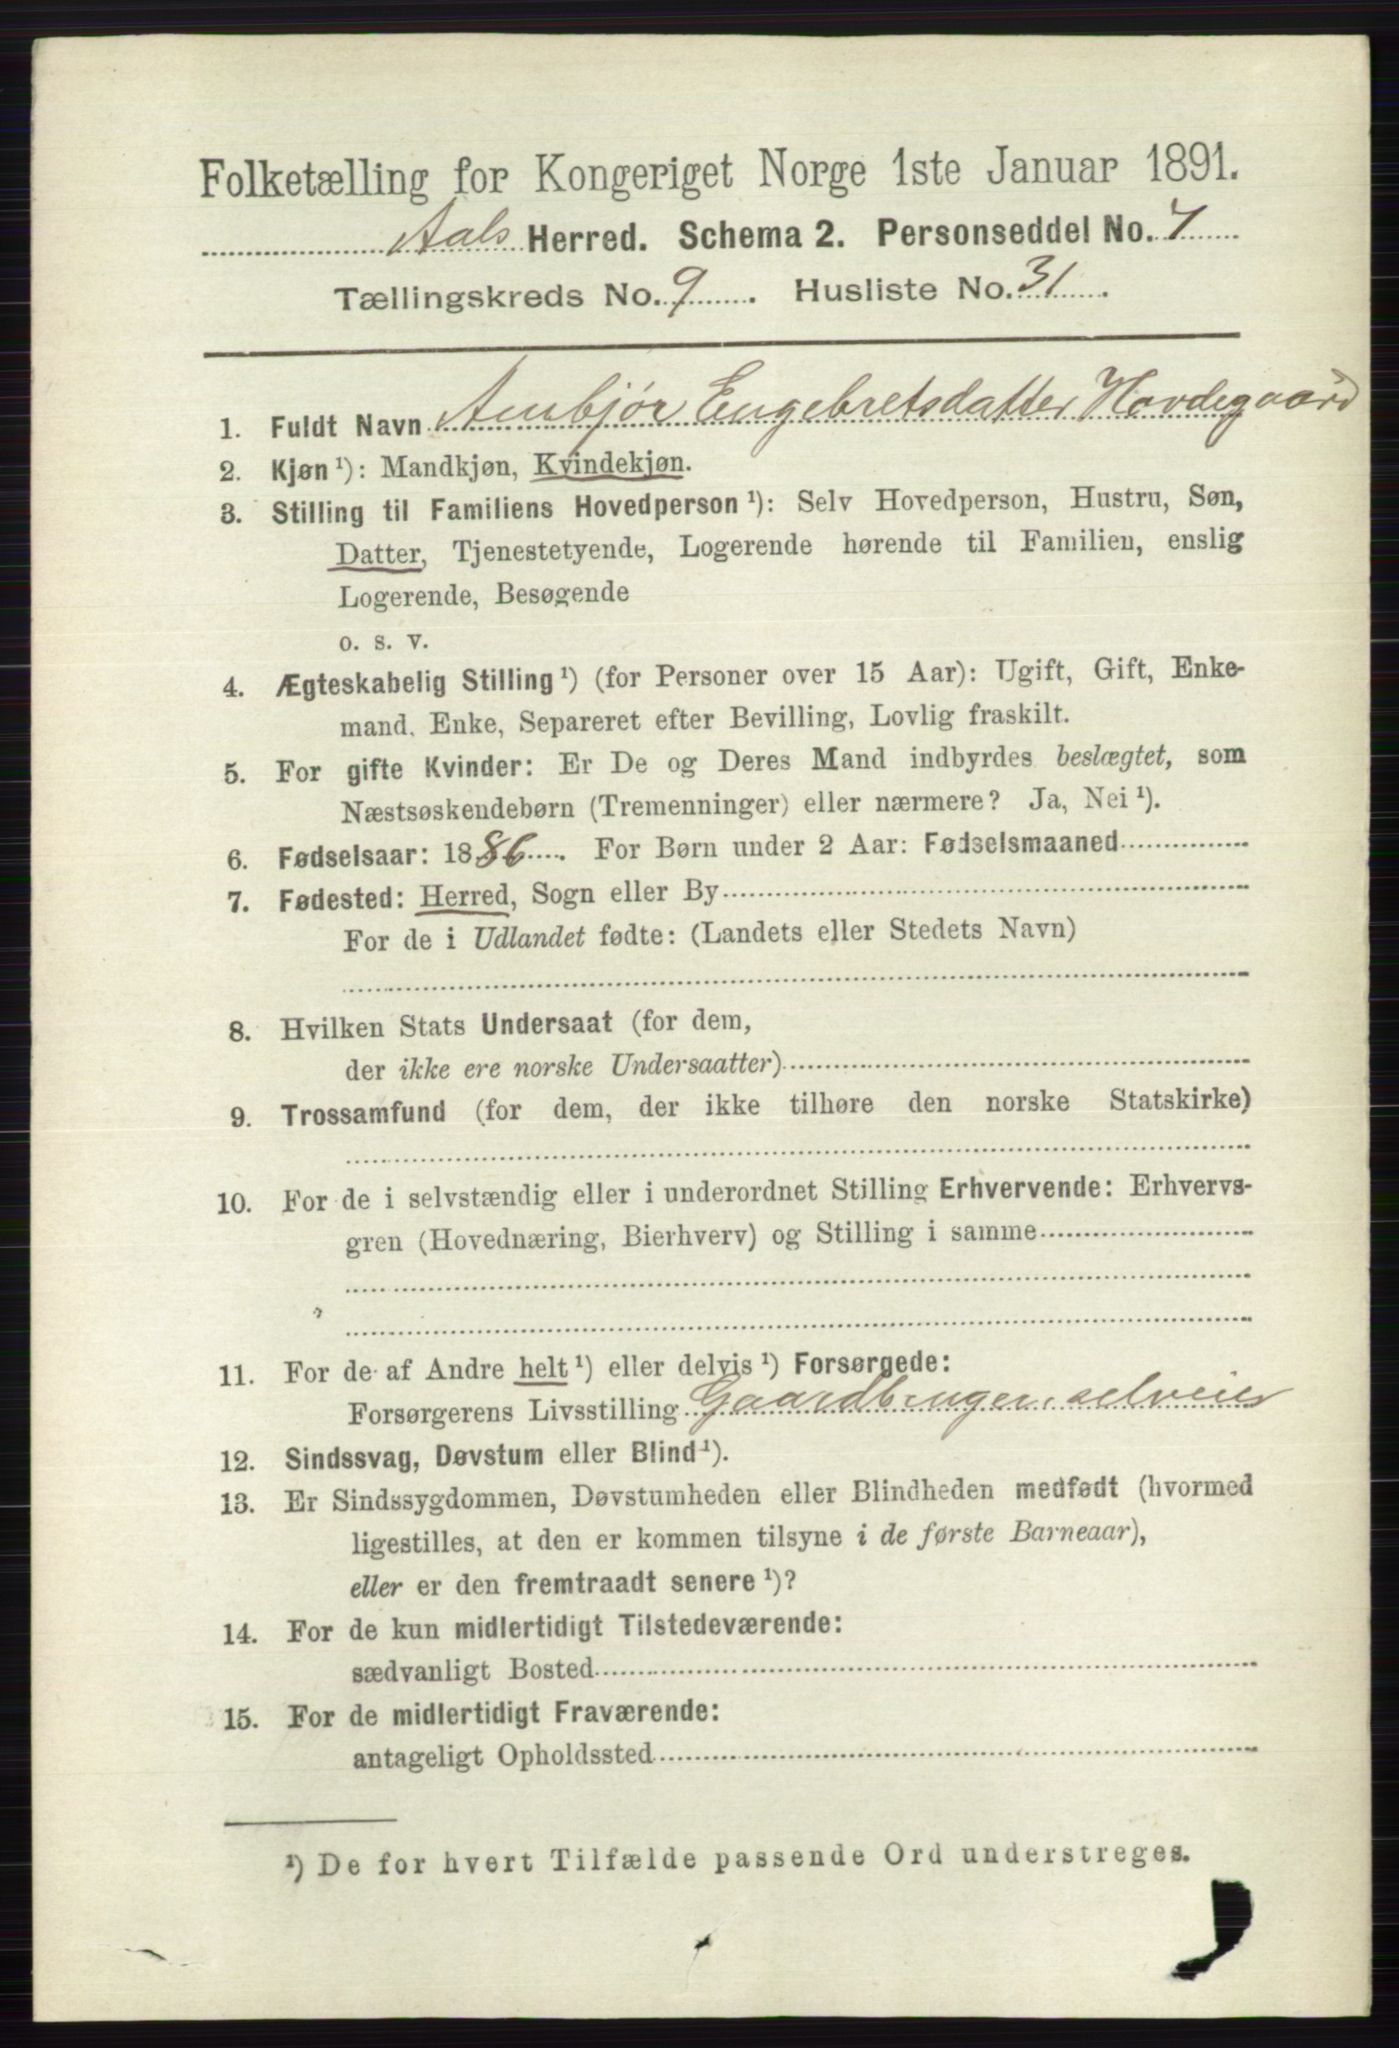 Folketælling for Kongeriget Norge 1ste Januar 1891.
Aals Herred. Schema 2. Personseddel No. 7
Tællingskreds No. 9. Husliste No. 31.
1. Fuldt Navn Ambjør Engebretsdatter Hovdegaard
2. Kjøn ¹): Mandkjøn, Kvindekjøn.
3. Stilling til Familiens Hovedperson ¹): Selv Hovedperson, Hustru, Søn,
Datter, Tjenestetyende, Logerende hørende til Familien, enslig
Logerende, Besøgende
o. s. v.
4. Ægteskabelig Stilling ¹) (for Personer over 15 Aar): Ugift, Gift, Enke-
mand, Enke, Separeret efter Bevilling, Lovlig fraskilt.
5. For gifte Kvinder: Er De og Deres Mand indbyrdes beslægtet, som
Næstsøskendebørn (Tremenninger) eller nærmere? Ja, Nei ¹).
6. Fødselsaar: 1886. For Børn under 2 Aar: Fødselsmaaned
7. Fødested: Herred, Sogn eller By
For de i Udlandet fødte: (Landets eller Stedets Navn)
8. Hvilken Stats Undersaat (for dem,
der ikke ere norske Undersaatter)
9. Trossamfund (for dem, der ikke tilhøre den norske Statskirke)
10. For de i selvstændig eller i underordnet Stilling Erhvervende: Erhvervs-
gren (Hovednæring, Bierhverv) og Stilling i samme
11. For de af Andre helt ¹) eller delvis ¹) Forsørgede:
Forsørgerens Livsstilling Gaardbruger, selveier
12. Sindssvag, Døvstum eller Blind ¹).
13. Er Sindssygdommen, Døvstumheden eller Blindheden medfødt (hvormed
ligestilles, at den er kommen tilsyne i de første Barneaar),
eller er den fremtraadt senere ¹)?
14. For de kun midlertidigt Tilstedeværende:
sædvanligt Bosted
15. For de midlertidigt Fraværende:
antageligt Opholdssted
¹) De for hvert Tilfælde passende Ord understreges.